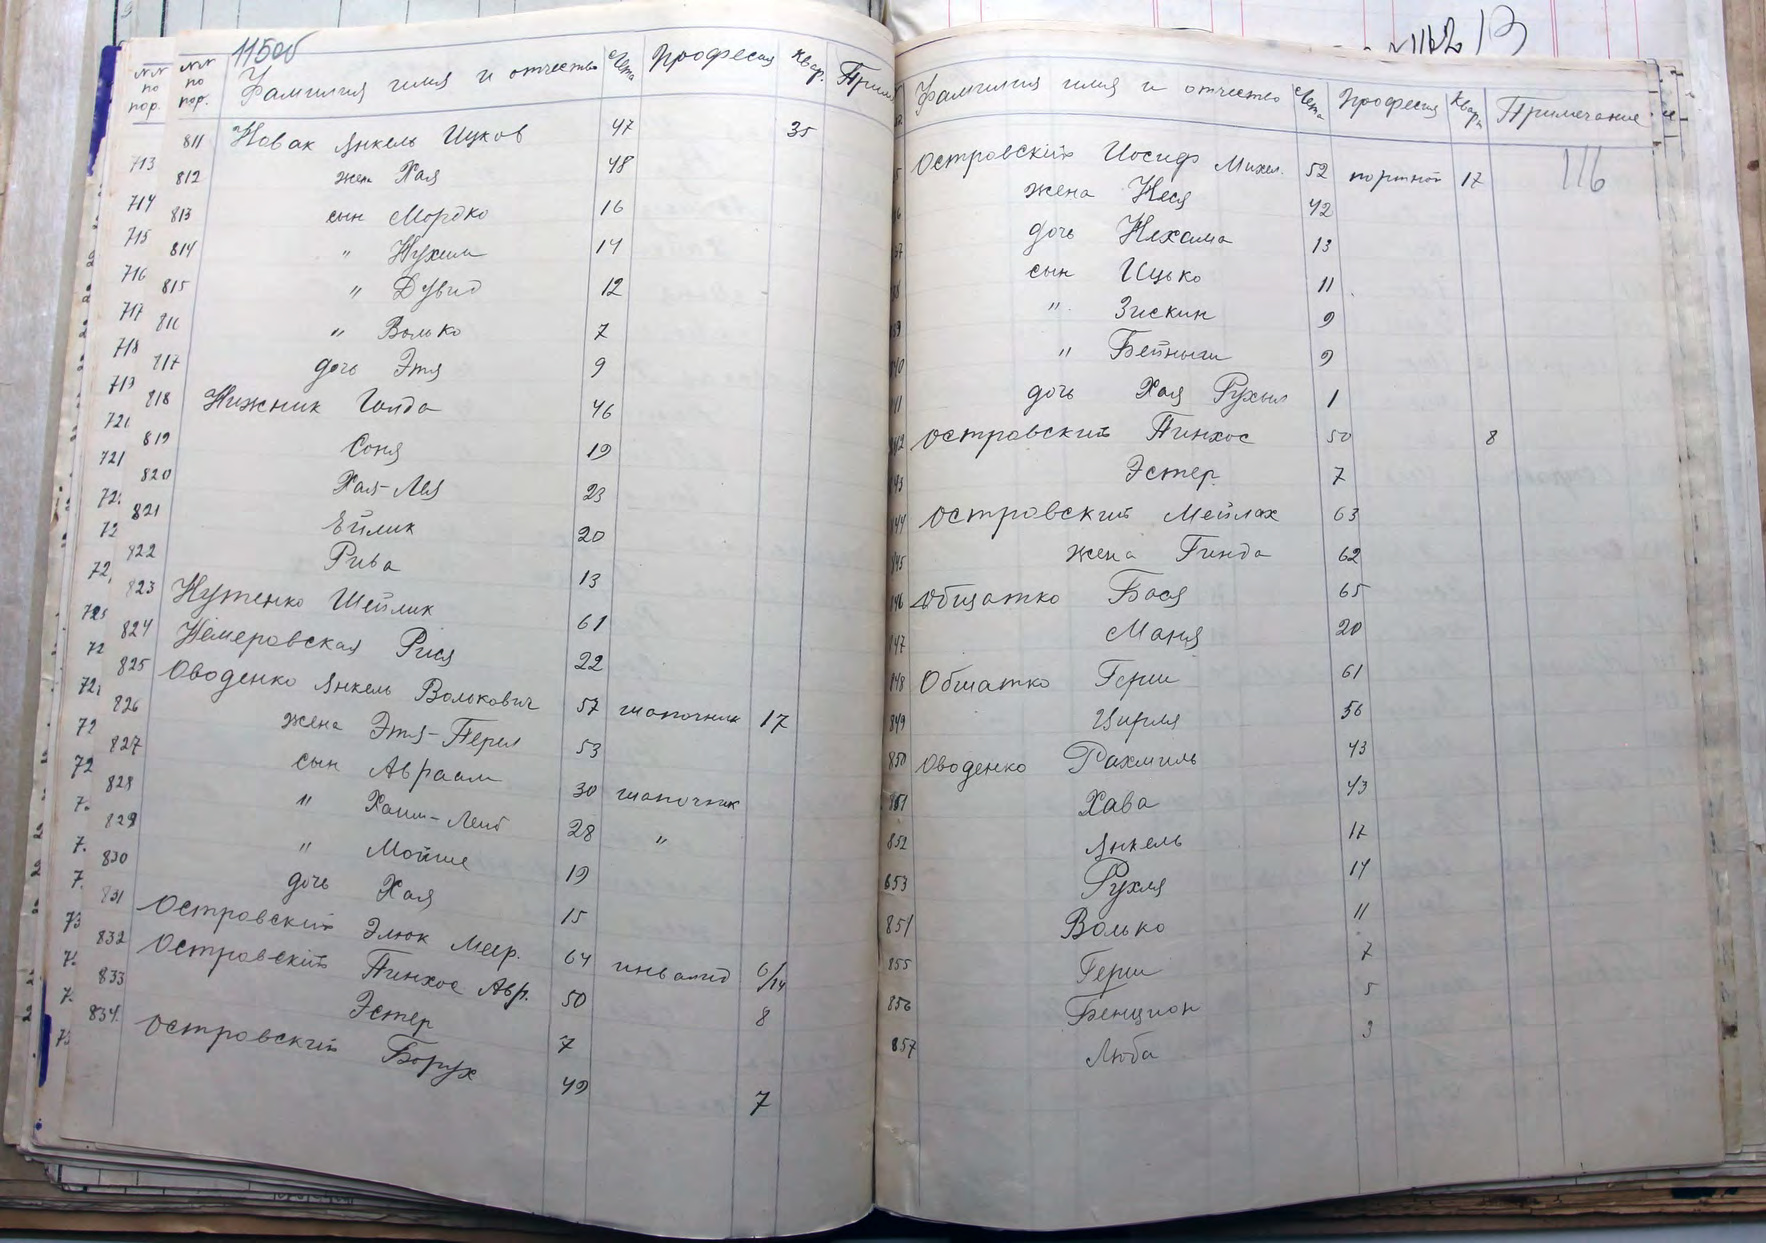 115об
№№ по пор. Фамилия имя и отчество Лета Професия Квар. Прим
811 Новак Янкель Ицков 47 35
812 жена Хая 48
813 сын Мордко 16
814 " Нухим 14
815 " Дувид 12
816 " Волько 7
817 дочь Этя 9
818 Нижник Голда 46
819 Соня 19
820 Хая-Лея 23
821 Ейлик 20
822 Рива 13
823 Нутенко Шейлик 61
824 Немеровская Рися 22
825 Оводенко Янкель Волькович 57 шапочник 17
826 жена Этя-Перел 53
827 сын Авраам 30 шапочник
828 " Хаим-Лейб 28 "
829 " Мойше 19
830 дочь Хая 15
831 Островский Элюк Меер. 64 инвалид 6/14
832 Островский Пинхос Авр. 50 8
833 Эстер 7
834 Островский Борух 49 7
116
Фамилия имя и отчество Лета Професия Квар Примечание
Островский Иосиф Михел. 52 портной 17
жена Неся 42
дочь Нехама 13
сын Ицько 11
" Зискин 9
" Бейныш 9
дочь Хая Рухыл 1
Островский Пинхос 50 8
Эстер 7
Островский Мейлах 63
жена Гинда 62
Обшатко Бася 65
Маня 20
Обшатко Герш 61
849 Цирля 56
850 Оводенко Рахмиль 43
851 Хава 43
852 Янкель 17
853 Рухля 14
854 Волько 11
855 Герш 7
856 Бенцион 5
857 Люба 3